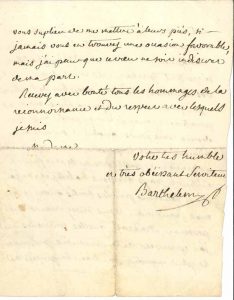 vous supplier de me mettre à leurs pies, si
jamais vous en trouvez une occasion favorable,
mais j'ai peur que ce vœu ne soit indiscret
de ma part.
Recevez avec bonté tous les hommages de la
reconnoissance et du respect avec lesquels
je suis
Votre très humble
et très obeissant Serviteur
Barthelemy